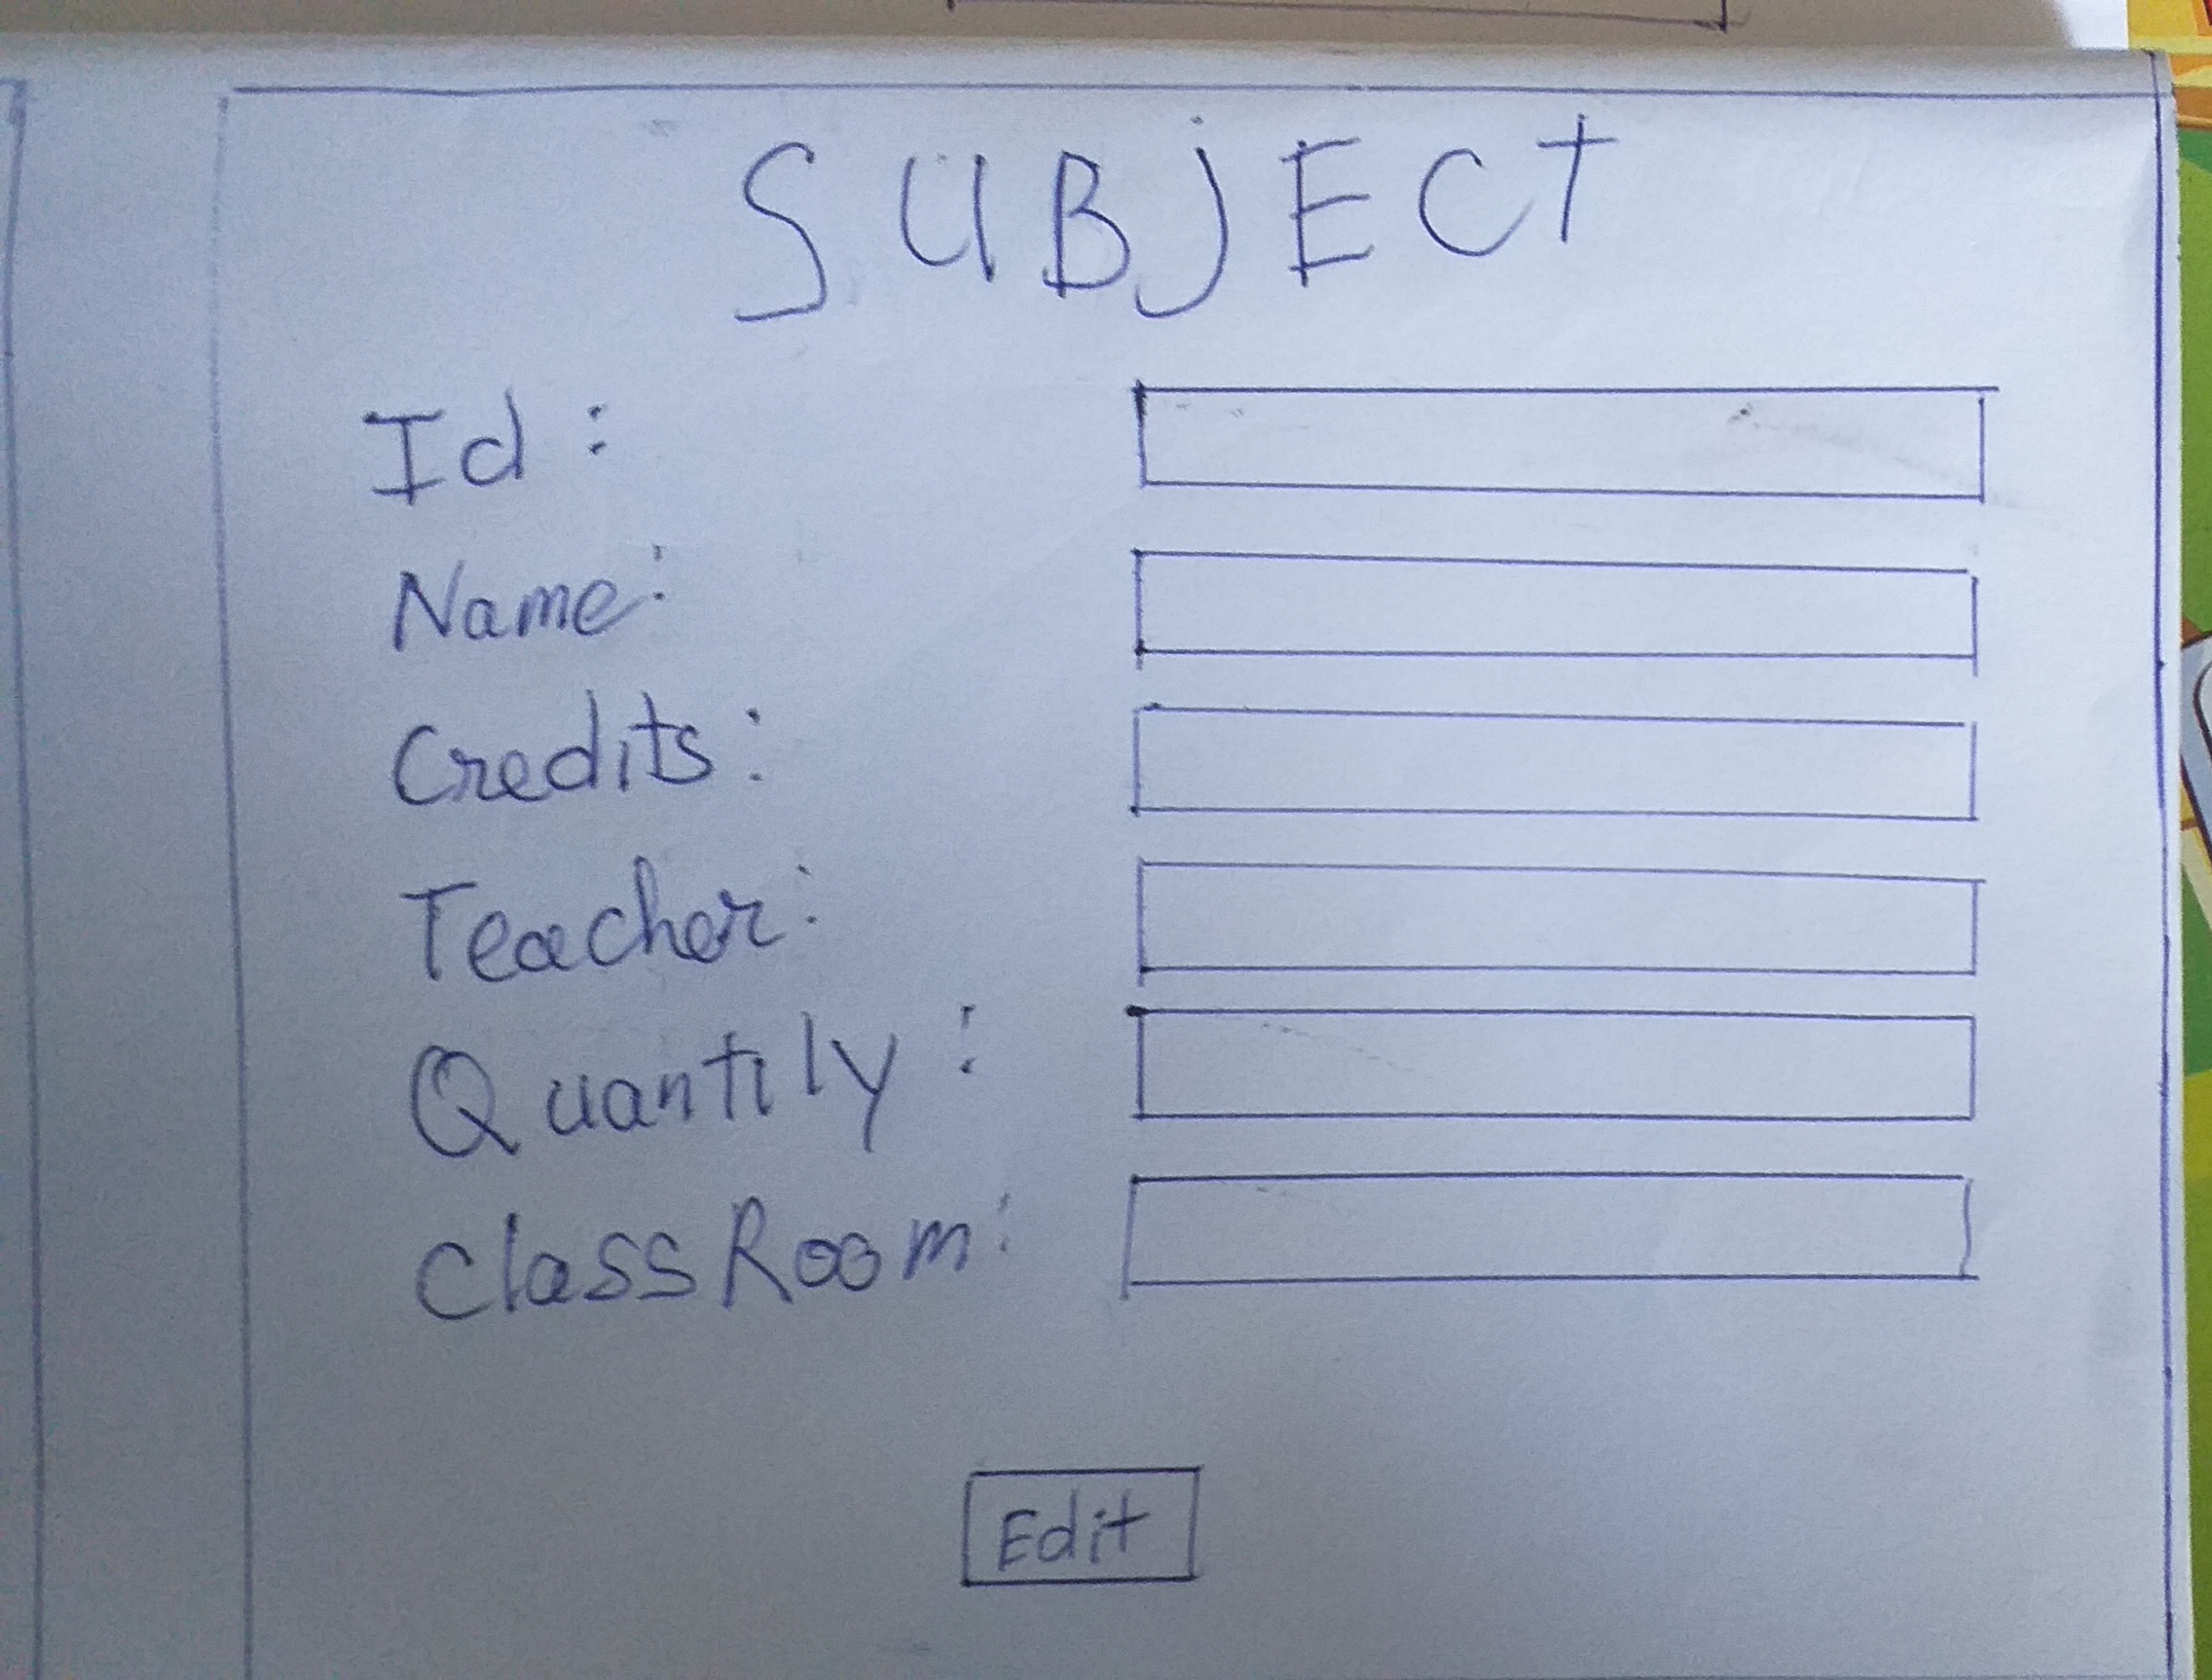 SUBjECT
Id :
Name:
Credits:
Teacher:
Quantily :
ClassRoom:
Edit